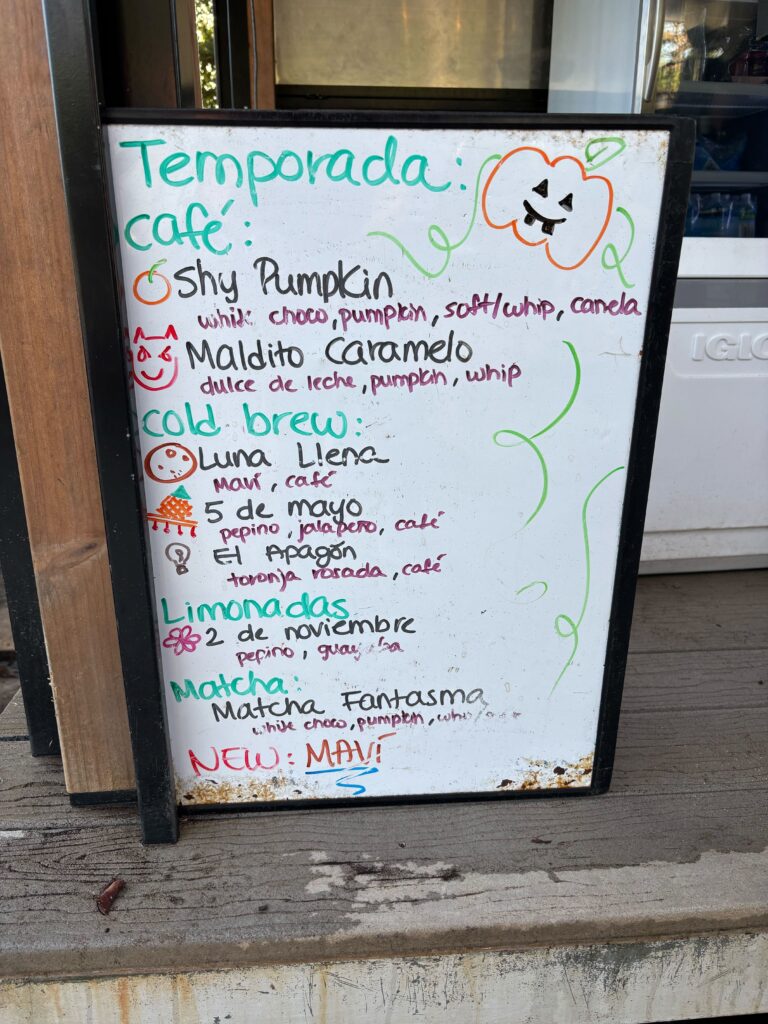 Temporada:
café:
Shy Pumpkin
white choco, pumpkin, soft/whip, canela
Maldito Caramelo
dulce de leche, pumpkin, whip
cold brew:
Luna Llena
Maví, café
5 de mayo
pepino, jalapeño, café
El Apagón
toronja rosada, café
Limonadas
2 de noviembre
pepino,
Matcha:
Matcha Fantasma
white choco, pumpkin,
NEW: MAVÍ
IGLO